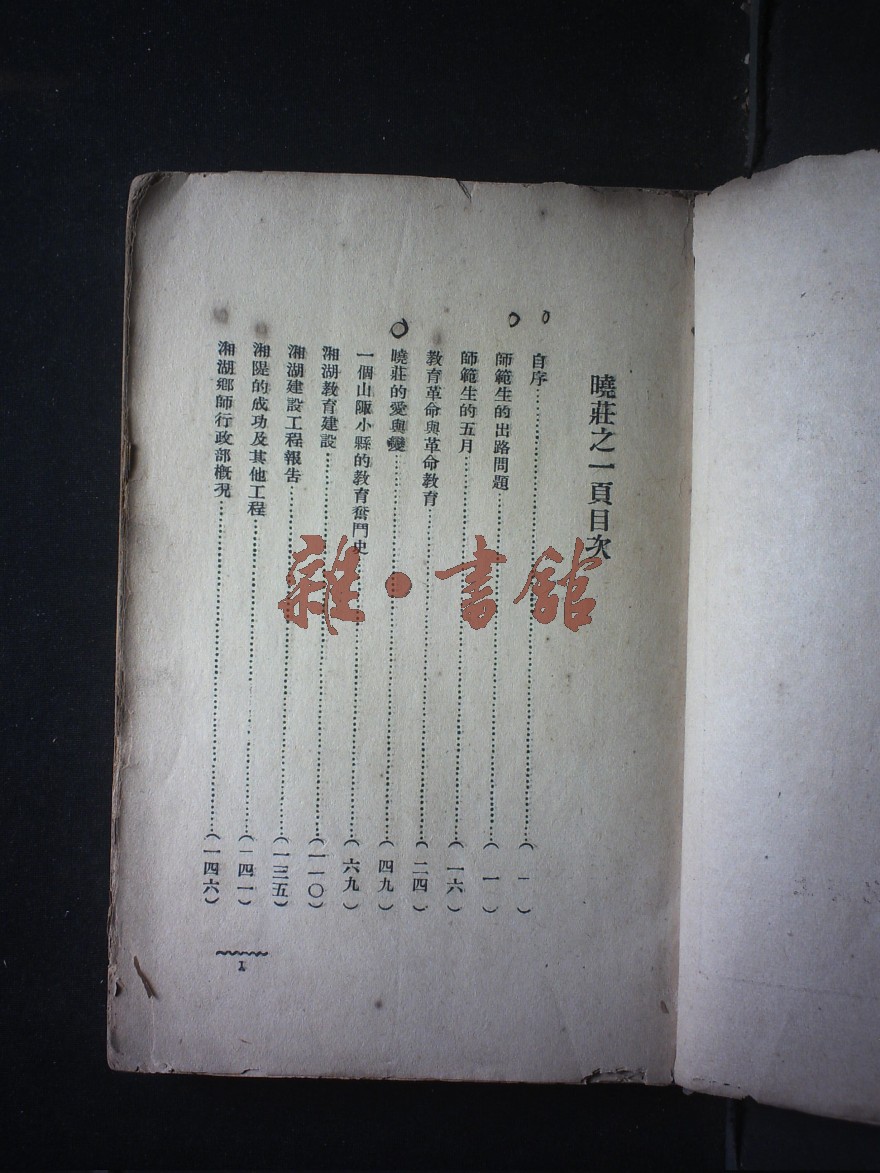 曉莊之一頁目次
自序……………………(一)
師範生的出路問題……………………(一)
師範生的五月……………………(一六)
教育革命與革命教育……………………(二四)
曉莊的愛與變……………………(四九)
一個山陬小縣的教育奮鬥史……………………(六九)
湘湖教育建設……………………(一一〇)
湘湖建設工程報告……………………(一三五)
湘隄的成功及其他工程……………………(一四一)
湘湖鄉師行政部概況……………………(一四六)
1
雜·書館